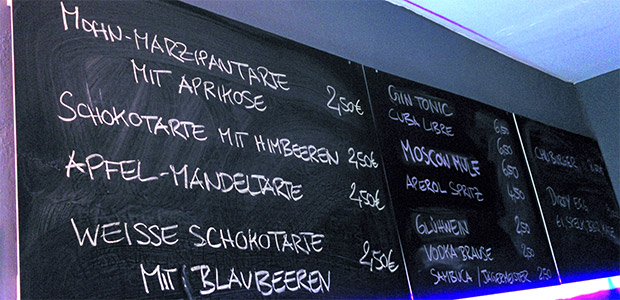 MOHN-MARZIPANTARTE
MIT APRIKOSE 2,50€
SCHOKOTARTE MIT HIMBEEREN 2,50€
APFEL-MANDELTARTE 2,50€
WEISSE SCHOKOTARTE 2,50€
MIT BLAUBEEREN
GIN TONIC 6,50
CUBA LIBRE 6,50
MOSCOW MULE 6,50
APEROL SPRITZ 4,50
GLÜHWEIN 2,50
VODKA BRAUSE 2,50
SAMBUCA | JÄGERMEISTER 2,50